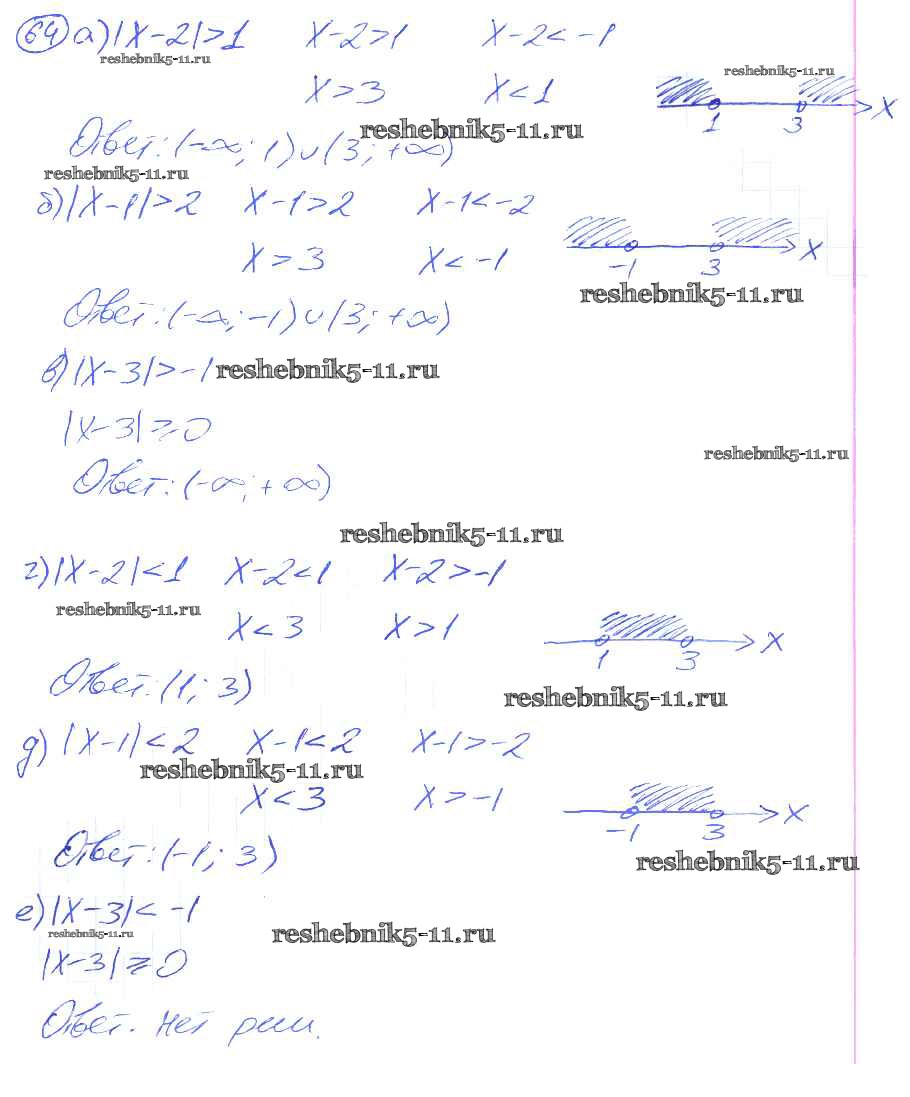 64 а) |x-2|>1 x-2>1 x-2<-1
reshebnik5-11.ru
reshebnik5-11.ru
x>3 x<1
1 3 x
reshebnik5-11.ru
Ответ: (-∞; 1)∪(3; +∞)
reshebnik5-11.ru
б) |x-1|>2 x-1>2 x-1<-2
x>3 x<-1
-1 3 x
reshebnik5-11.ru
Ответ: (-∞; -1)∪(3; +∞)
в) |x-3|>-1
reshebnik5-11.ru
|x-3|≥0
reshebnik5-11.ru
Ответ: (-∞; +∞)
reshebnik5-11.ru
г) |x-2|<1 x-2<1 x-2>-1
reshebnik5-11.ru
x<3 x>1
1 3 x
Ответ: (1; 3)
reshebnik5-11.ru
д) |x-1|<2 x-1<2 x-1>-2
reshebnik5-11.ru
x<3 x>-1
-1 3 x
Ответ: (-1; 3)
reshebnik5-11.ru
е) |x-3|<-1
reshebnik5-11.ru
reshebnik5-11.ru
|x-3|≥0
Ответ. Нет реш.